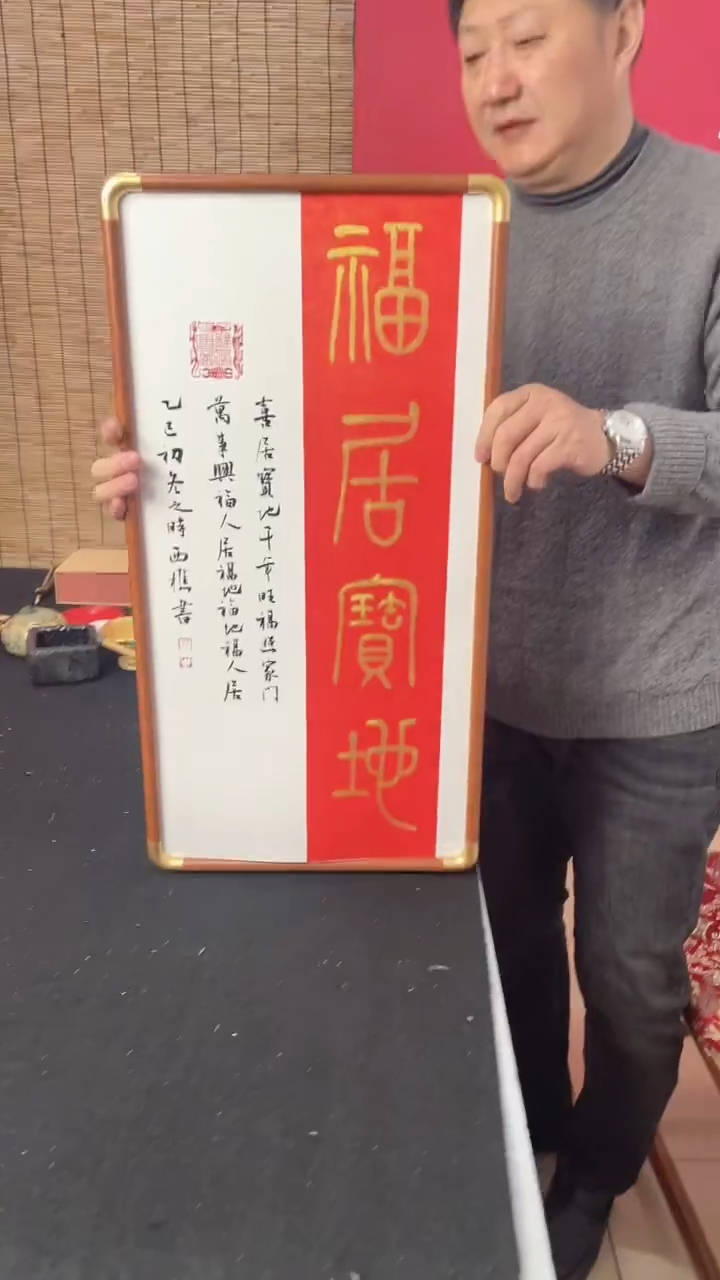 福居寶地
喜居寶地千年旺福照家门
萬事興福人居福地福地福人居
乙巳初冬之時西樵書